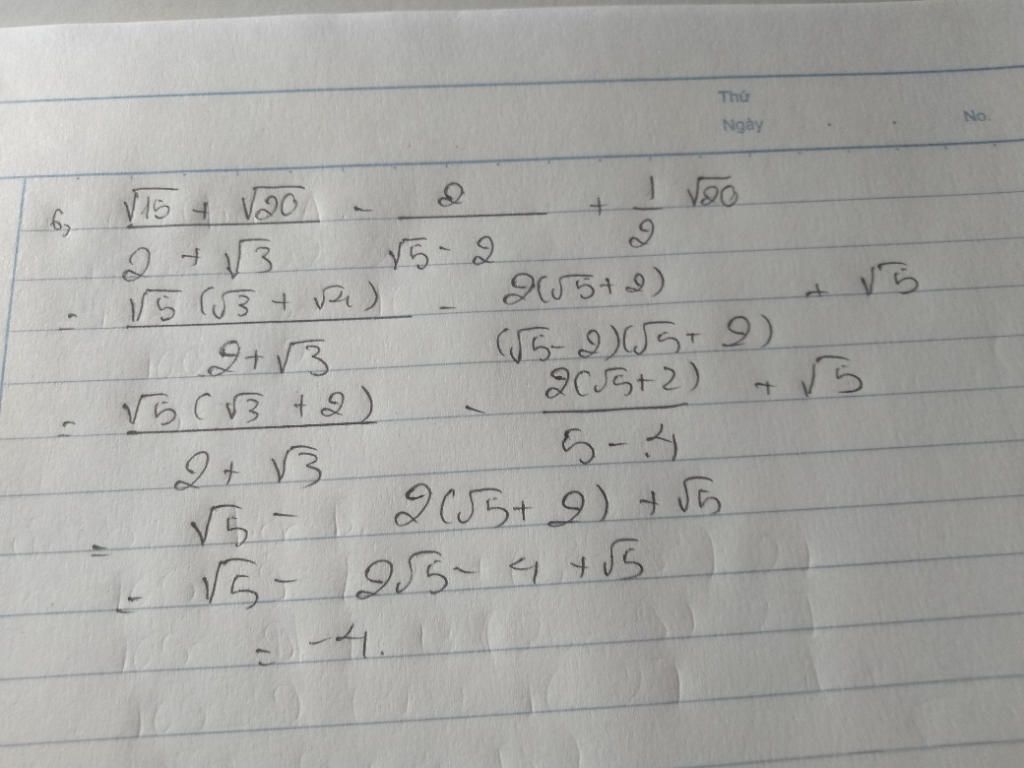 Thứ
Ngày . . No.
6, (√15 + √20)/(2 + √3) - 2/(√5 - 2) + 1/2 √20
= √5(√3 + √4)/(2 + √3) - 2(√5 + 2)/((√5 - 2)(√5 + 2)) + √5
= √5(√3 + 2)/(2 + √3) - 2(√5 + 2)/(5 - 4) + √5
= √5 - 2(√5 + 2) + √5
= √5 - 2√5 - 4 + √5
= -4.